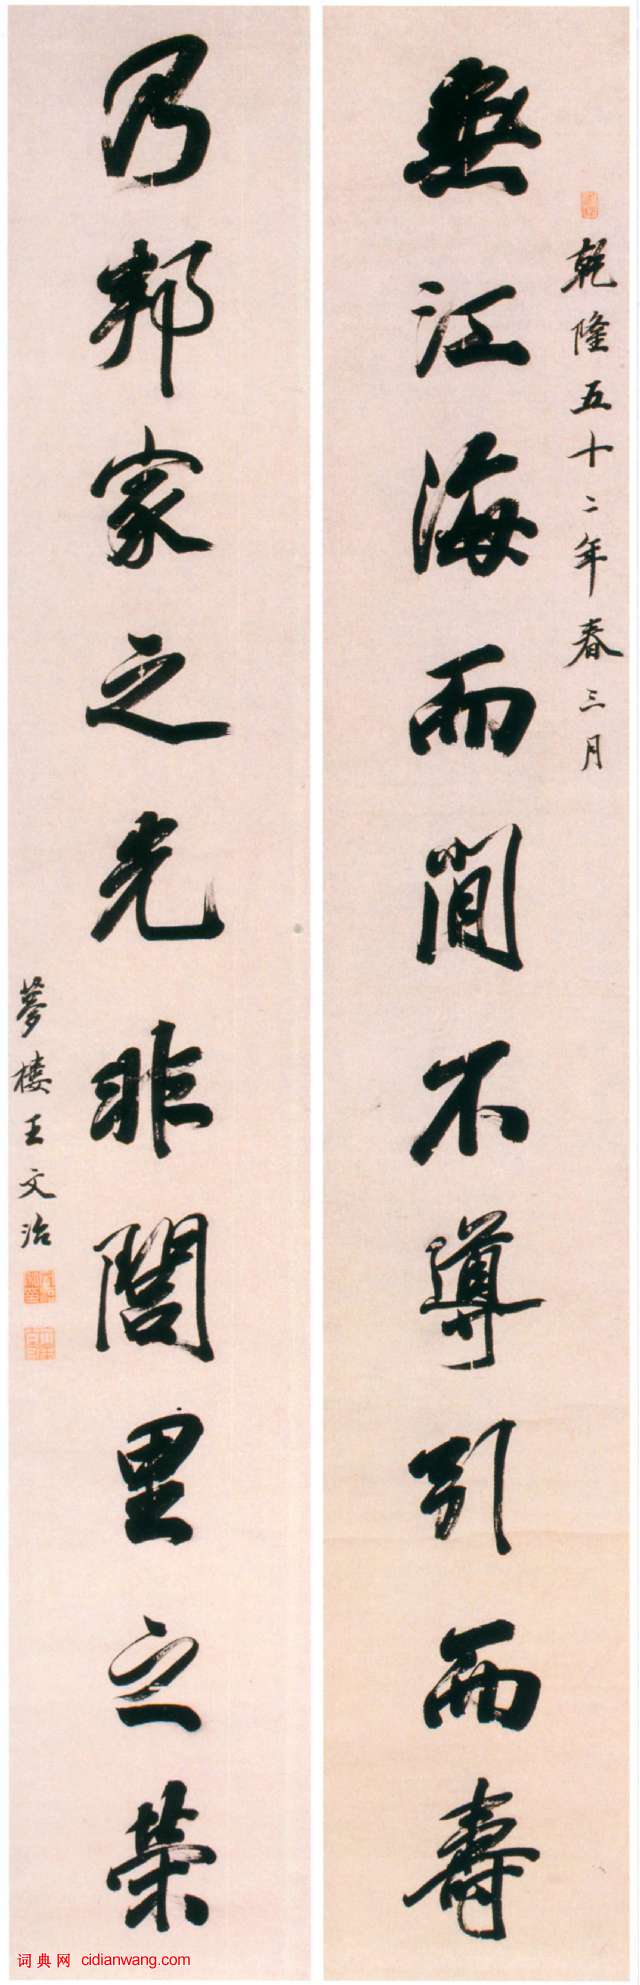 乾隆五十二年春三月
無江海而閒不導引而壽
乃邦家之光非閭里之榮
夢樓王文治
词典网 cidianwang.com